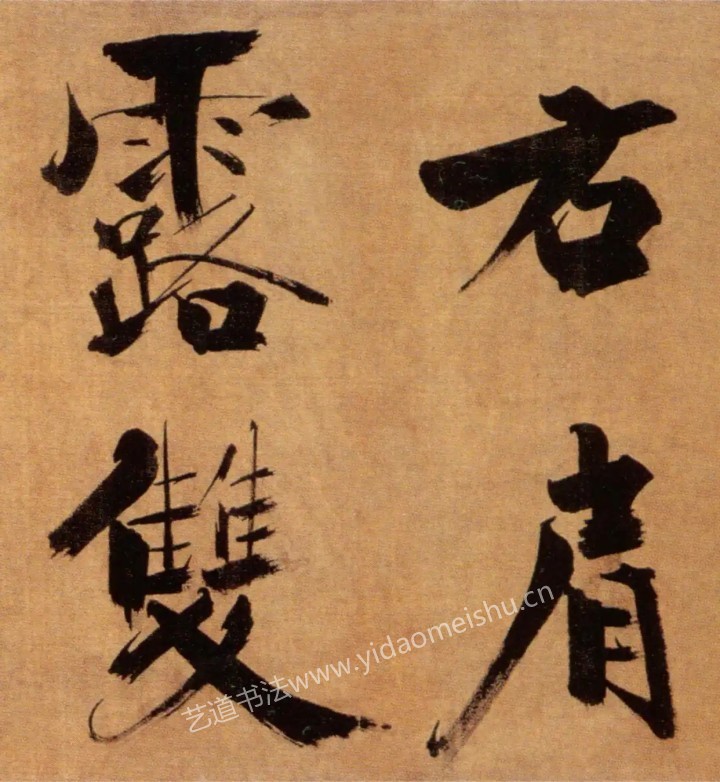 右肩
露雙
艺道书法www.yidaomeishu.cn